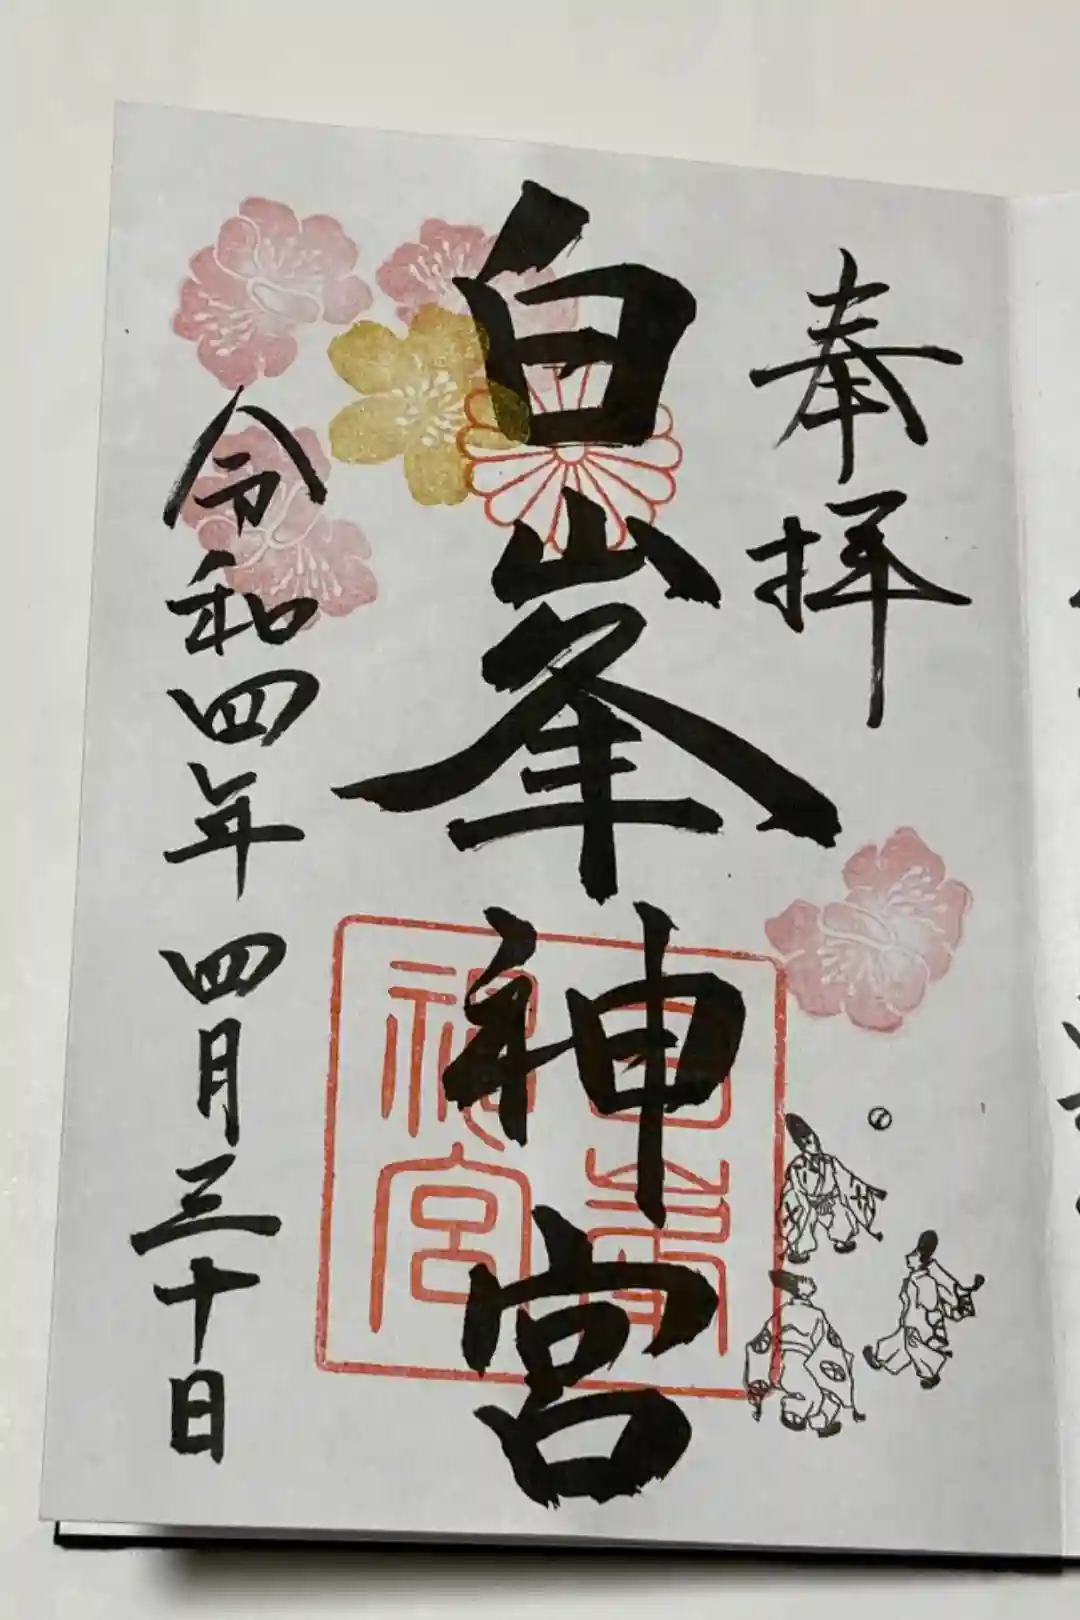 奉拝
白峯神宮
令和四年四月三十日
白峯
神宮